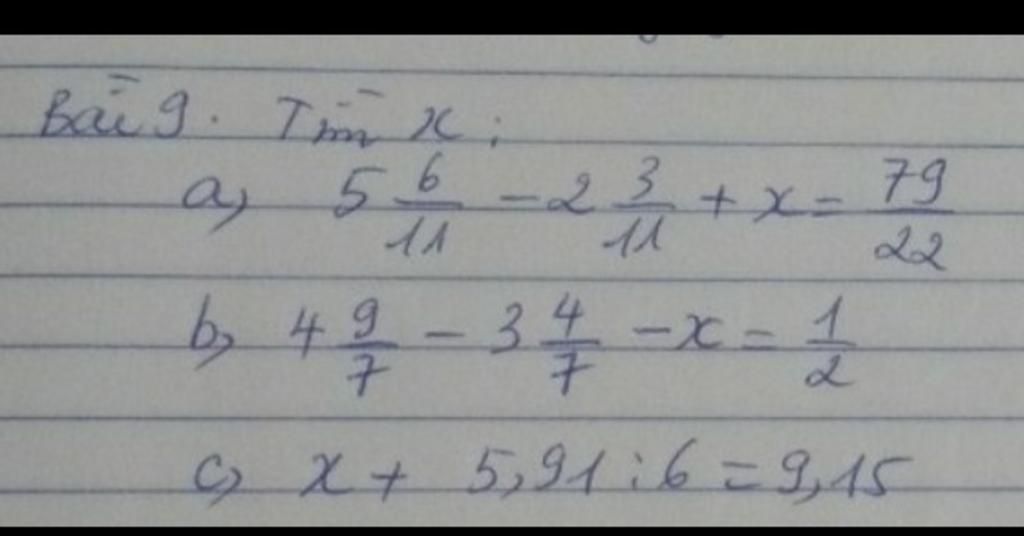 Bài 9. Tìm x:
a, 5 6/11 - 2 3/11 + x = 79/22
b, 4 9/7 - 3 4/7 - x = 1/2
c, x + 5,91 : 6 = 9,15